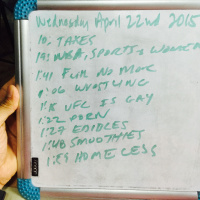 Wednesday April 22nd 2015
10: TAXES
NBA, SPORTS &
1:41 FUN NO MORE
:06 WRESTLING
1:15 UFC IS GAY
1:22 PORN
1:27 EDIBLES
1:48 SMOOTHIES
1:59 HOMELESS